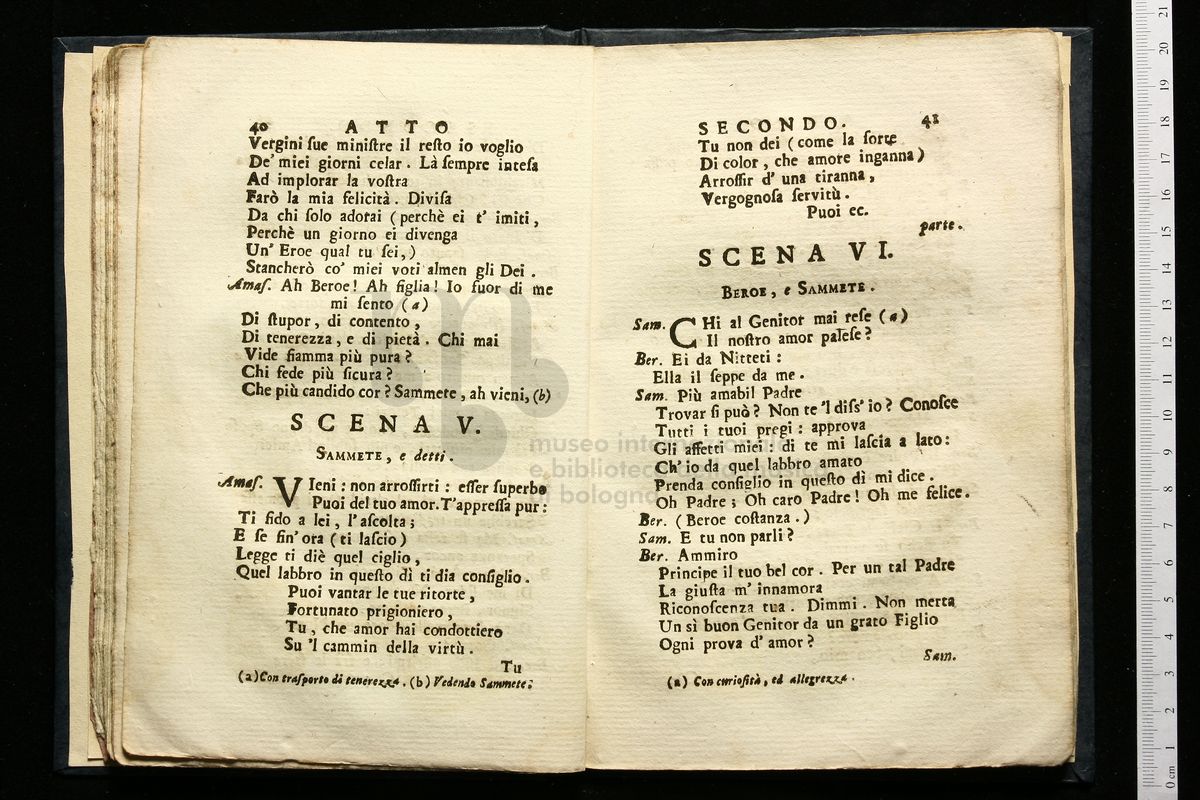 40 ATTO
Vergini ſue miniſtre il reſto io voglio
De' miei giorni celar. Là ſempre inteſa
Ad implorar la voſtra
Farò la mia felicità. Diviſa
Da chi ſolo adorai (perchè ei t' imiti,
Perchè un giorno ei divenga
Un' Eroe qual tu ſei,)
Stancherò co' miei voti almen gli Dei.
Amaſ. Ah Beroe! Ah figlia! Io fuor di me
mi ſento (a)
Di ſtupor, di contento,
Di tenerezza, e di pietà. Chi mai
Vide fiamma più pura?
Chi fede più ſicura?
Che più candido cor? Sammete, ah vieni, (b)
SCENA V.
SAMMETE, e detti.
Amaſ. VIeni: non arroſſirti: eſſer ſuperbo
Puoi del tuo amor. T'appreſſa pur:
Ti fido a lei, l'aſcolta;
E ſe fin' ora (ti laſcio)
Legge ti diè quel ciglio,
Quel labbro in queſto dì ti dia conſiglio.
Puoi vantar le tue ritorte,
Fortunato prigioniero,
Tu, che amor hai condottiero
Su 'l cammin della virtù.
Tu
(a) Con traſporto di tenerezza. (b) Vedendo Sammete.
SECONDO. 41
Tu non dei (come la ſorte
Di color, che amore inganna)
Arroſſir d' una tiranna,
Vergognoſa ſervitù.
Puoi ec.
parte.
SCENA VI.
BEROE, e SAMMETE.
Sam. CHi al Genitor mai reſe (a)
Il noſtro amor paleſe?
Ber. Ei da Nitteti:
Ella il ſeppe da me.
Sam. Più amabil Padre
Trovar ſi può? Non te 'l diſs' io? Conoſce
Tutti i tuoi pregi: approva
Gli affetti miei: di te mi laſcia a lato:
Ch' io da quel labbro amato
Prenda conſiglio in queſto dì mi dice.
Oh Padre; Oh caro Padre! Oh me felice.
Ber. (Beroe coſtanza.)
Sam. E tu non parli?
Ber. Ammiro
Principe il tuo bel cor. Per un tal Padre
La giuſta m' innamora
Riconoſcenza tua. Dimmi. Non merta
Un sì buon Genitor da un grato Figlio
Ogni prova d' amor?
Sam.
(a) Con curioſità, ed allegrezza.
museo internazionale
e biblioteca della musica
di bologna
0 cm 1 2 3 4 5 6 7 8 9 10 11 12 13 14 15 16 17 18 19 20 21